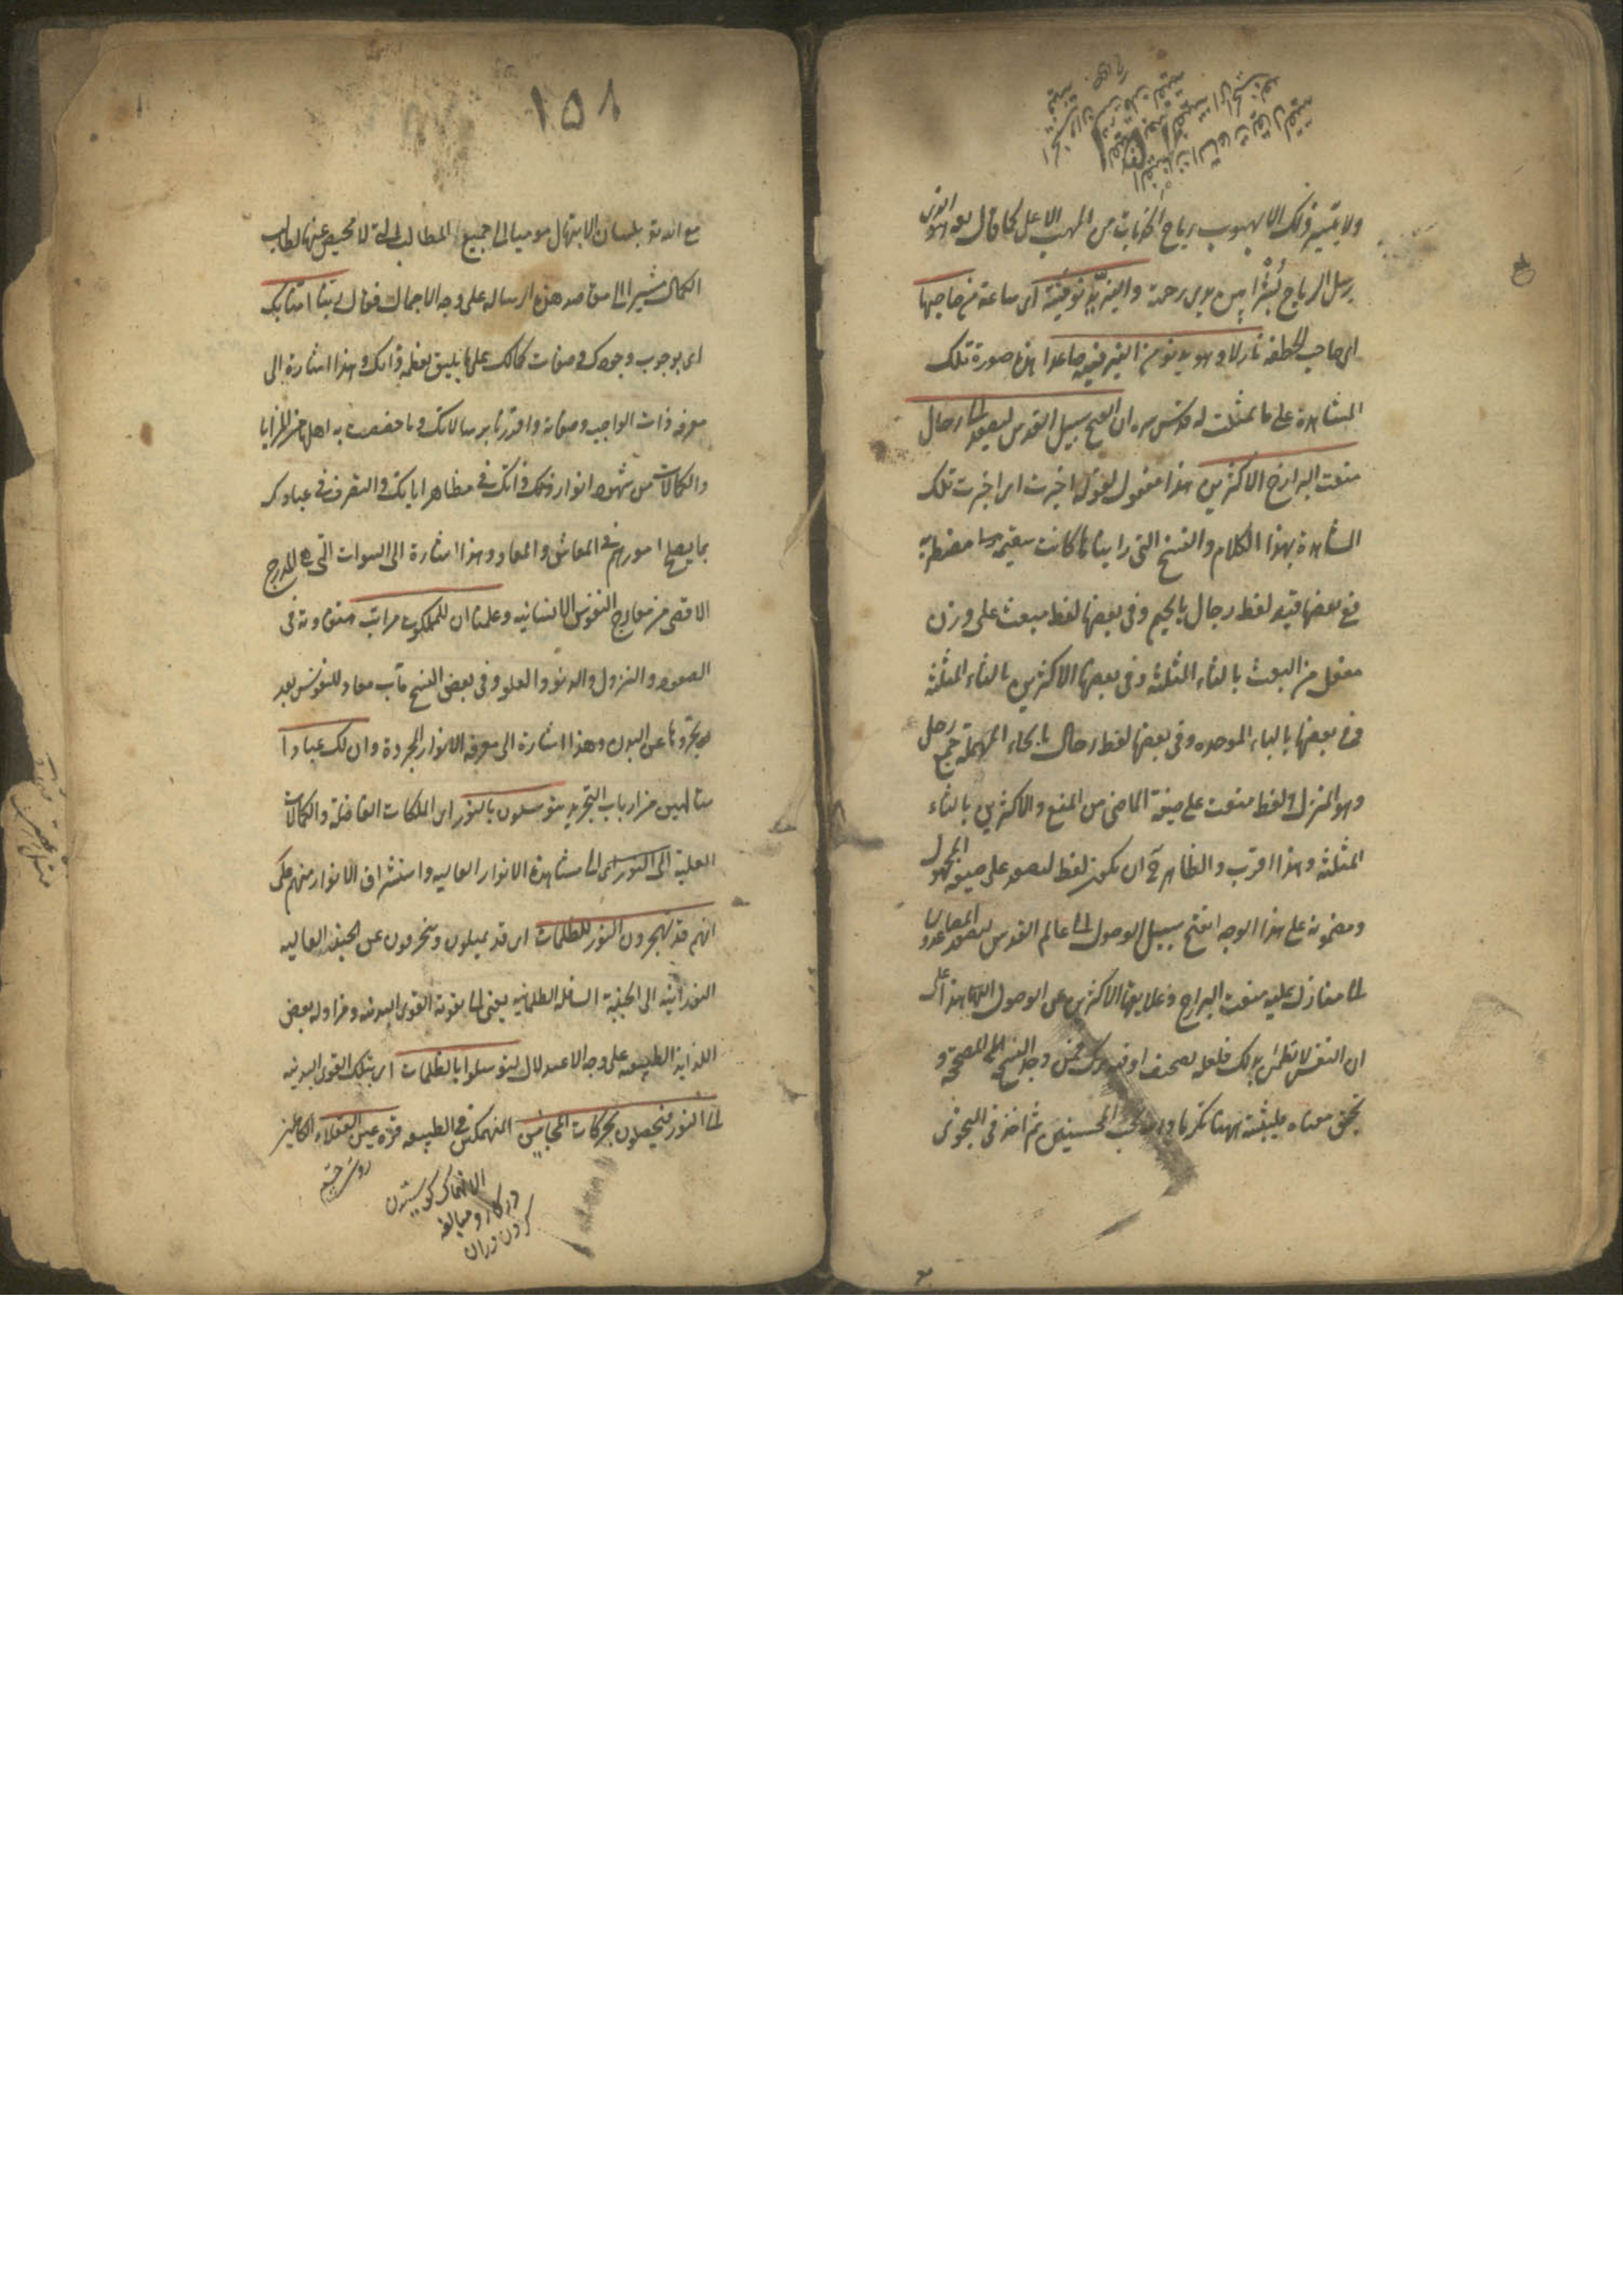 ولا يتيسر ذلك الا بهبوب رياح الجذبات من المهب الاعلى كما قال تعالى وهو الذي
يرسل الرياح بُشْرًا بين يدي رحمته والنيريّة نوفيته اى ساعة من صاحبها
اى صاحب الخطفة نازلا وهو يدنو من النير فيه صاعدا هذه صورة تلك
المشاهدة على ما تمثلت له قدس سره ان افتح سبيل القدس ليصعد الى رحال
منعت البرازخ الاكثرين هذا مفعول لقوله اخبرت اى اخبرت تلك
المشاهدة بهذا الكلام والنسخ التى رايناها كانت سقيمة مضطربة
ففى بعضها قيد لفظ رجال بالجيم وفى بعضها لفظ مبعث على وزن
مفعل من البعث بالثاء المثلثة وفى بعضها الاكثرين بالثاء المثلثة
وفى بعضها بالباء الموحدة وفى بعضها لفظ رحال بالحاء المهملة جمع رحل
وهو المنزل ولفظ منعت على صيغة الماضى من المنع والاكثرين بالثاء
المثلثة وهذا اقرب والظاهر ح ان يكون لفظ ليصعد على صيغة المجهول
ومضمونه على هذا الوجه افتح سبيل الوصول الى عالم القدس ليصعد الصاعدون
الى منازل عليه منعت البرازخ وعلايقها الاكثرين عن الوصول اليها هذا على
ان النفس لا تطمئن بذلك فلعله تصحف او فيه فمن وجد النسخ المصححة و
تحقق معناه فليثبته ههنا تكرما والله يحب المحسنين ثم اخذ فى النجوى
١٥٨
مع الله تعالى بلسان الابتهال موميا الى جميع المطالب التى لا محيص عنها لطالب
الكمال مشيرا الى مقاصد هذه الرسالة على وجه الاجمال فقال ربنا امنا بك
اى بوجوب وجودك وصفات كمالك على ما يليق بعظمة ذاتك وهذا اشارة الى
معرفة ذات الواجب وصفاته واقررنا برسالاتك وما خصصت به اهلها من المزايا
والكمالات من شهود انوار ذاتك فى مظاهر اياتك والتصرف فى عبادك
بما يصلح امورهم فى المعاش والمعاد وهذا اشارة الى النبوات التى هى المدرج
الاقصى من معارج النفوس الانسانية وعلمنا ان للملكوت مراتب متفاوتة فى
الصعود والنزول والدنو والعلو وفى بعض النسخ مآب معاد للنفوس بعد
تجردها عن البدن وهذا اشارة الى معرفة الانوار المجردة وان لك عبادا
متالهين من ارباب التجريد يتوسلون بالنور اى الملكات الفاضلة والكمالات
العلية الى النور اى الى مشاهدة الانوار العالية واستشراق الانوار منهم على
انهم قد يهجرون النور للظلمات اى قد يميلون وينحرفون عن الجنبة العالية
النورانية الى الجنبة السافلة الظلمانية يعنى الى تقوية القوى البدنية ومزاولة بعض
اللذايذ الطبيعية على وجه الاعتدال ليتوسلوا بالظلمات اى بتلك القوى البدنية
الى النور فيحصلون بحركات المجانين المنهمكين فى الطبيعة قرة عين العقلاء الكاملين
روشنى چشم
الانهماك كوشيدن
در كار و مبالغه
كردن در ان